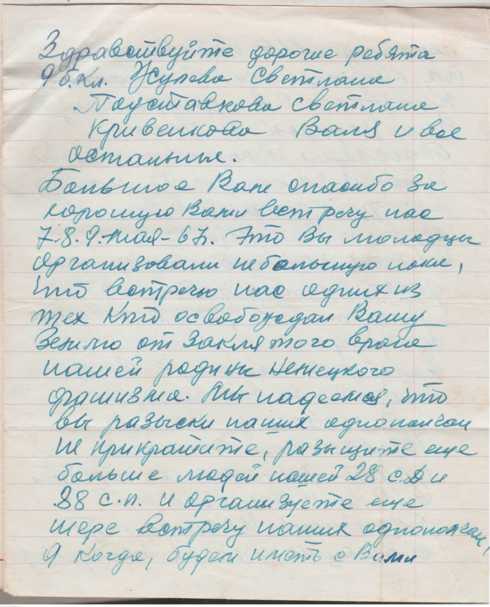 Здравствуйте дорогие ребята
9 б. кл. Усулева Светлана
Пауставкова Светлана
Кривенкова Валя и все
остальные.
Большое Вам спасибо за
хорошую Вами встречу нас
7-8.9. мая-67г. Это Вы молодцы
организовали небольшую пока,
что встречу нас одних из
тех кто освобождал Вашу
Землю от Заклятого врага
нашей родины Немецкого
фашизма. Мы надеемся, что
вы разыски наших однополчан
не прикратите, разыщите еще
больше людей нашей 28 с.д и
88 с.п. и организуете еще
встречу наших однополчан,
будем иметь с Вами